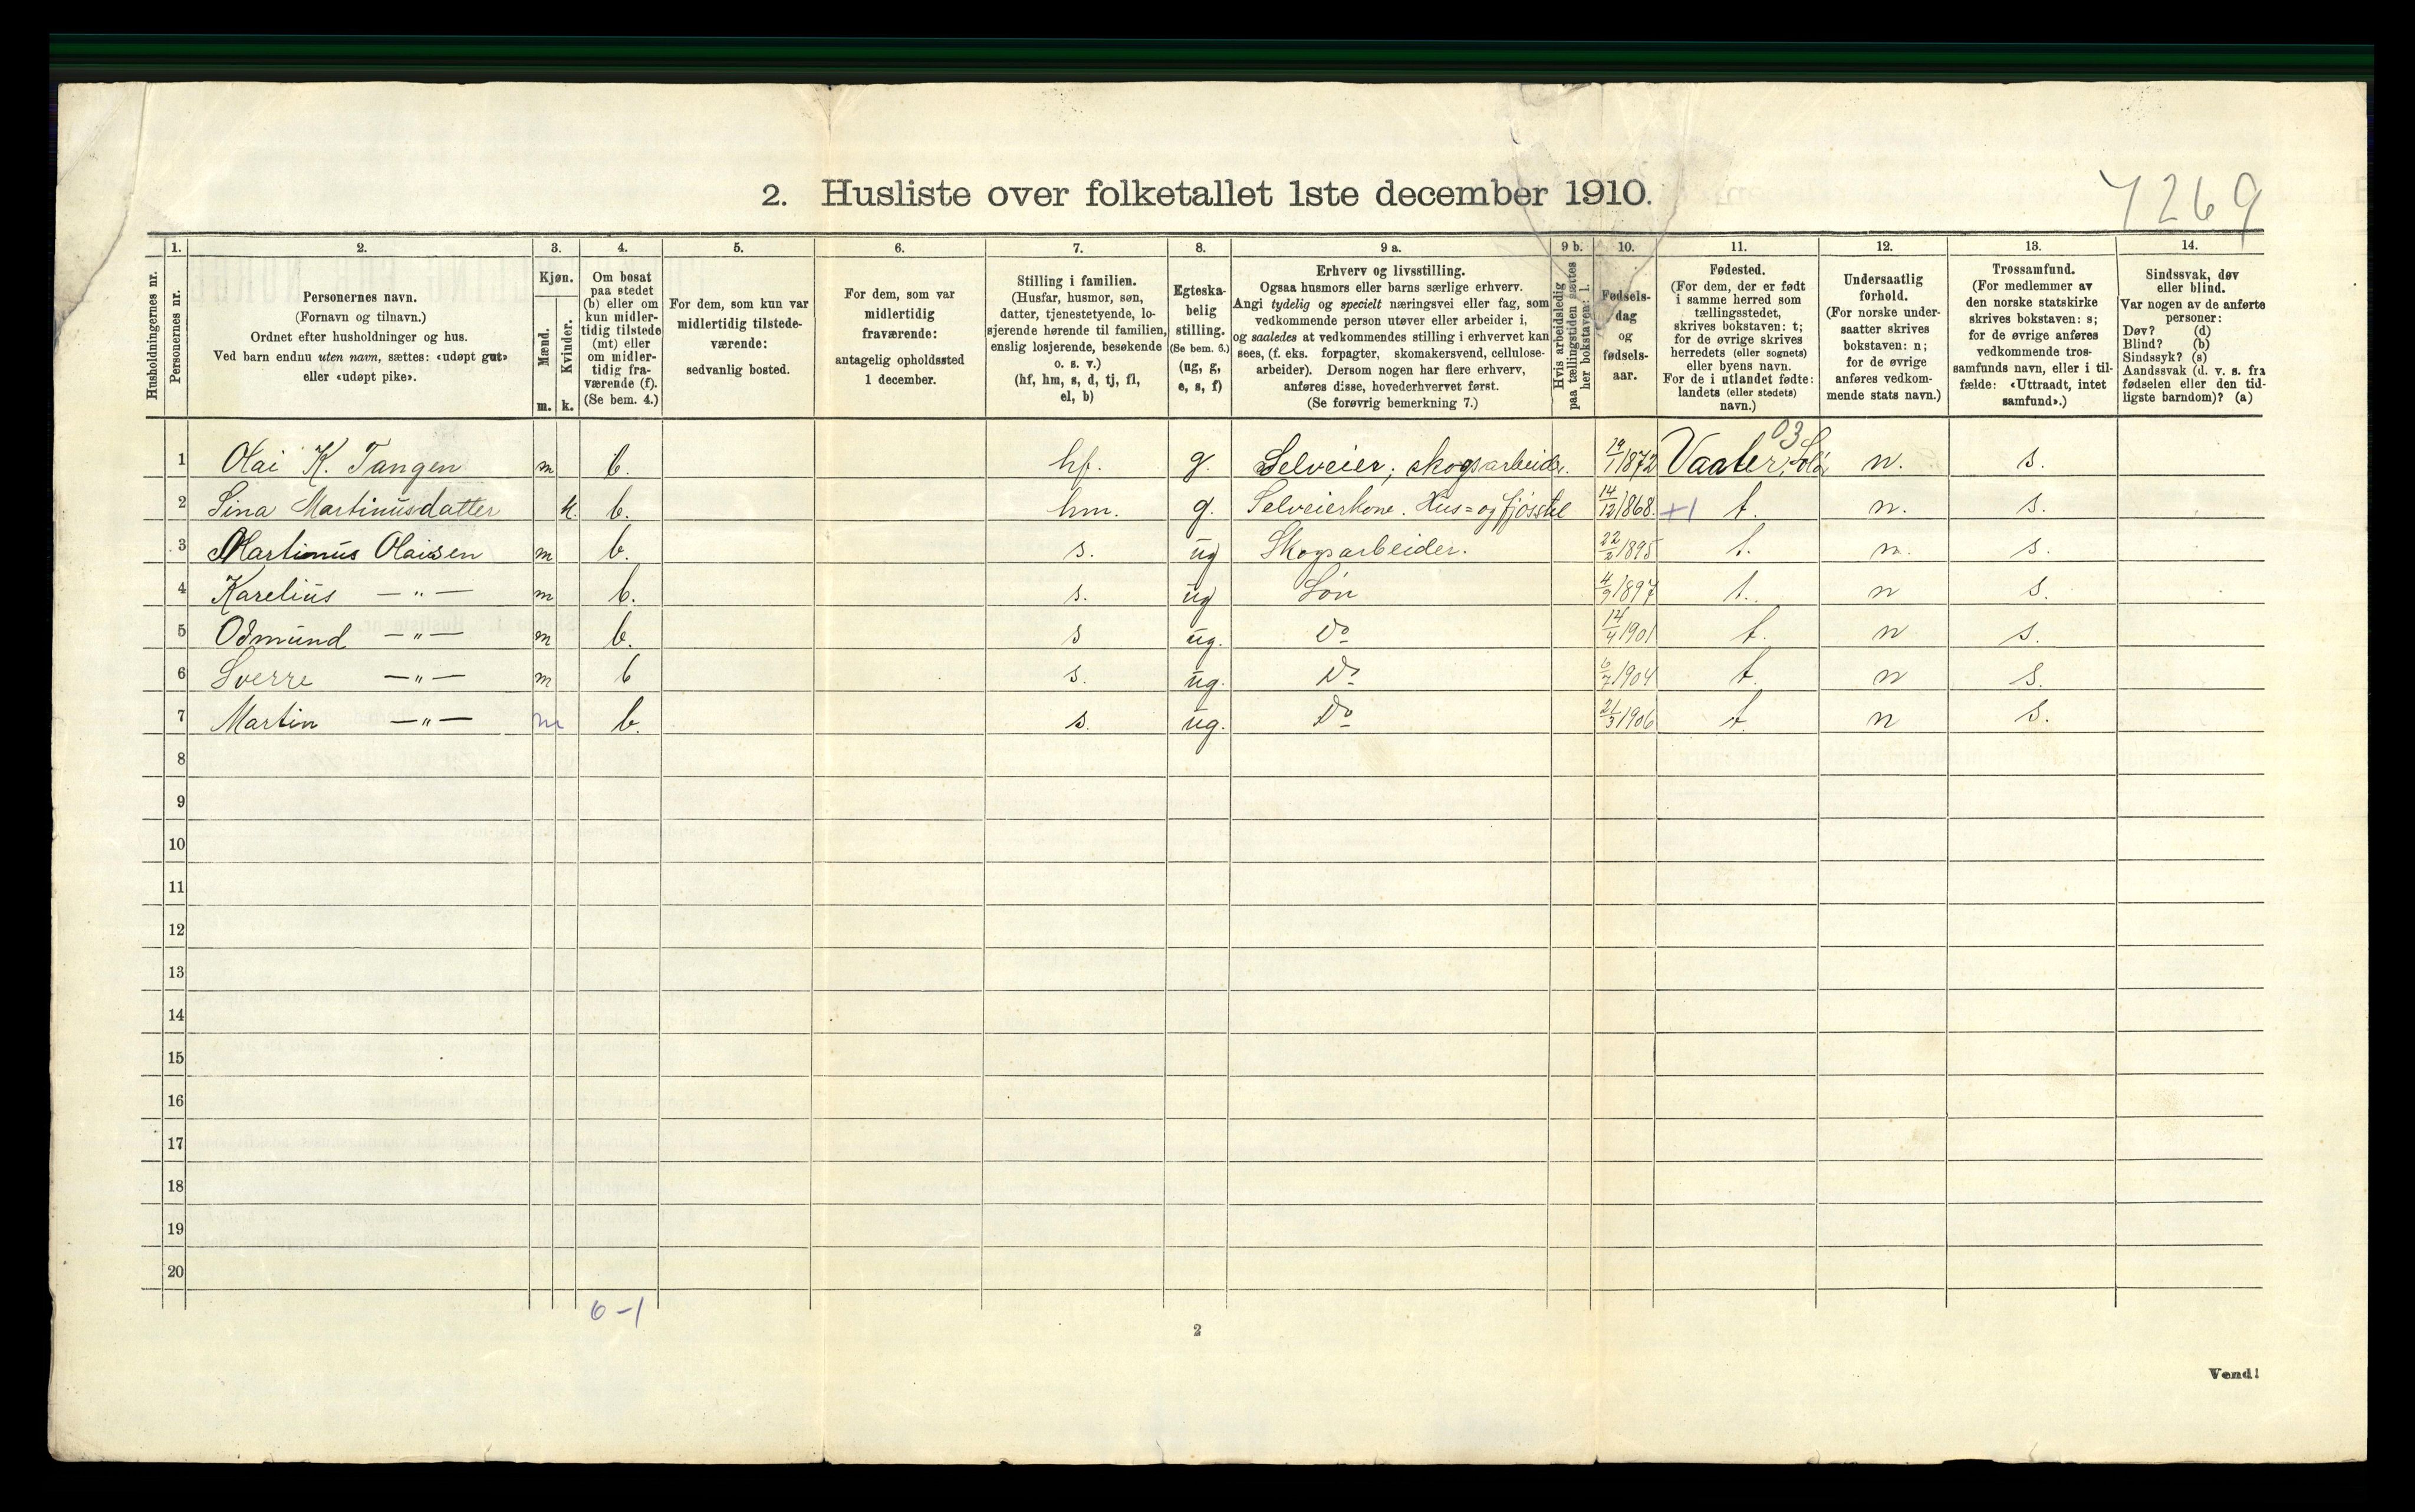 2. Husliste over folketallet 1ste december 1910.
7269
Husholdningernes nr.
1.
Personernes nr.
2.
Personernes navn.
(Fornavn og tilnavn.)
Ordnet efter husholdninger og hus.
Ved barn endnu uten navn, sættes: «udøpt gut»
eller «udøpt pike».
3.
Kjøn.
Mænd.
m.
Kvinder.
k.
4.
Om bosat
paa stedet
(b) eller om
kun midler-
tidig tilstede
(mt) eller
om midler-
tidig fra-
værende (f).
(Se bem. 4.)
5.
For dem, som kun var
midlertidig tilstede-
værende:
sedvanlig bosted.
6.
For dem, som var
midlertidig
fraværende:
antagelig opholdssted
1 december.
7.
Stilling i familien.
(Husfar, husmor, søn,
datter, tjenestetyende, lo-
sjerende hørende til familien,
enslig losjerende, besøkende
o. s. v.)
(hf, hm, s, d, tj, fl,
el, b)
8.
Egteska-
belig
stilling.
(Se bem. 6.)
(ug, g,
e, s, f)
9 a.
Erhverv og livsstilling.
Ogsaa husmors eller barns særlige erhverv.
Angi tydelig og specielt næringsvei eller fag, som
vedkommende person utøver eller arbeider i,
og saaledes at vedkommendes stilling i erhvervet kan
sees, (f. eks. forpagter, skomakersvend, cellulose-
arbeider). Dersom nogen har flere erhverv,
anføres disse, hovederhvervet først.
(Se forøvrig bemerkning 7.)
9 b.
Hvis arbeidsledig
paa tællingstiden sættes
her bokstaven: l.
10.
Fødsels-
dag
og
fødsels-
aar.
11.
Fødested.
(For dem, der er født
i samme herred som
tællingsstedet,
skrives bokstaven: t;
for de øvrige skrives
herredets (eller sognets)
eller byens navn.
For de i utlandet fødte:
landets (eller stedets)
navn.)
12.
Undersaatlig
forhold.
(For norske under-
saatter skrives
bokstaven: n;
for de øvrige
anføres vedkom-
mende stats navn.)
13.
Trossamfund.
(For medlemmer av
den norske statskirke
skrives bokstaven: s;
for de øvrige anføres
vedkommende tros-
samfunds navn, eller i til-
fælde: «Uttraadt, intet
samfund».)
14.
Sindssvak, døv
eller blind.
Var nogen av de anførte
personer:
Døv? (d)
Blind? (b)
Sindssyk? (s)
Aandssvak (d. v. s. fra
fødselen eller den tid-
ligste barndom)? (a)
03
1 Olai K. Tangen m b. hf. g. Selveier, skogsarbeider. 19/1 1872 Vaaler, Solør n. s.
2 Sina Martinusdatter k. b. hm. g. Selveierkone. Hus= og fjøsstel 14/12 1868. +1 t. n. s.
3 Martinus Olaisen m b. s. ug Skogsarbeider. 22/2 1895 t. n. s.
4 Karelius —"— m b. s. ug Søn 4/9 1897 t. n s.
5 Odmund —"— m b. s ug. Do 14/4 1901 t. n s.
6 Sverre —"— m b s. ug. Do 6/7 1904 t. n s.
7 Martin —"— m b. s. ug. Do 21/3 1906 t. n s.
8
9
10
11
12
13
14
15
16
17
18
19
20
6-1
2
Vend!